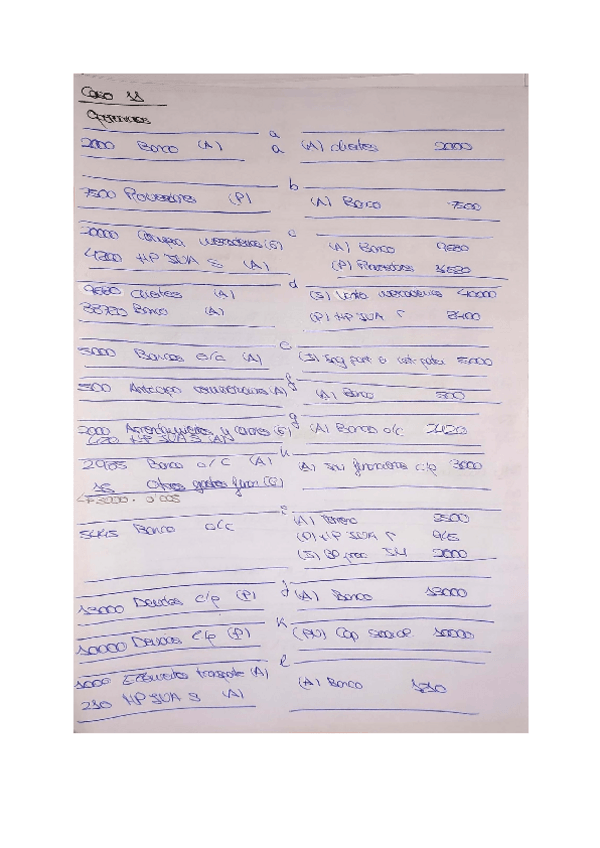 Caso 11
a
2000 Banco (A) a (A) clientes 2000
b
7500 Proveedores (P) (A) Banco 7500
c
Compra mercaderías (G) (A) Banco 9680
4200 HP IVA S (A) (P) Proveedores
d
9680 Clientes (A) (I) Venta mercaderías 40000
38720 Banco (A) (P) HP IVA R 8400
e
5000 Bancos c/c (A) (I) Ing 5000
f
500 Anticipo remuneraciones (A) (A) Banco 500
g
2000 Arrendamientos y canones (G) (A) Banco c/c 2420
420 HP IVA S (A)
h
2985 Banco c/c (A) (A) c/p 3000
15 Otros gastos finan (G)
3000 · 0'005
i
(A) Terreno 2500
(P) HP IVA R 945
5445 Banco c/c (I) BP 2000
j
13000 Deudas c/p (P) (A) Banco 13000
k
10000 Deudas c/p (P) (PN) Cap social 10000
l
1000 Elemento transporte (A)
210 HP IVA S (A) (A) Banco 1210